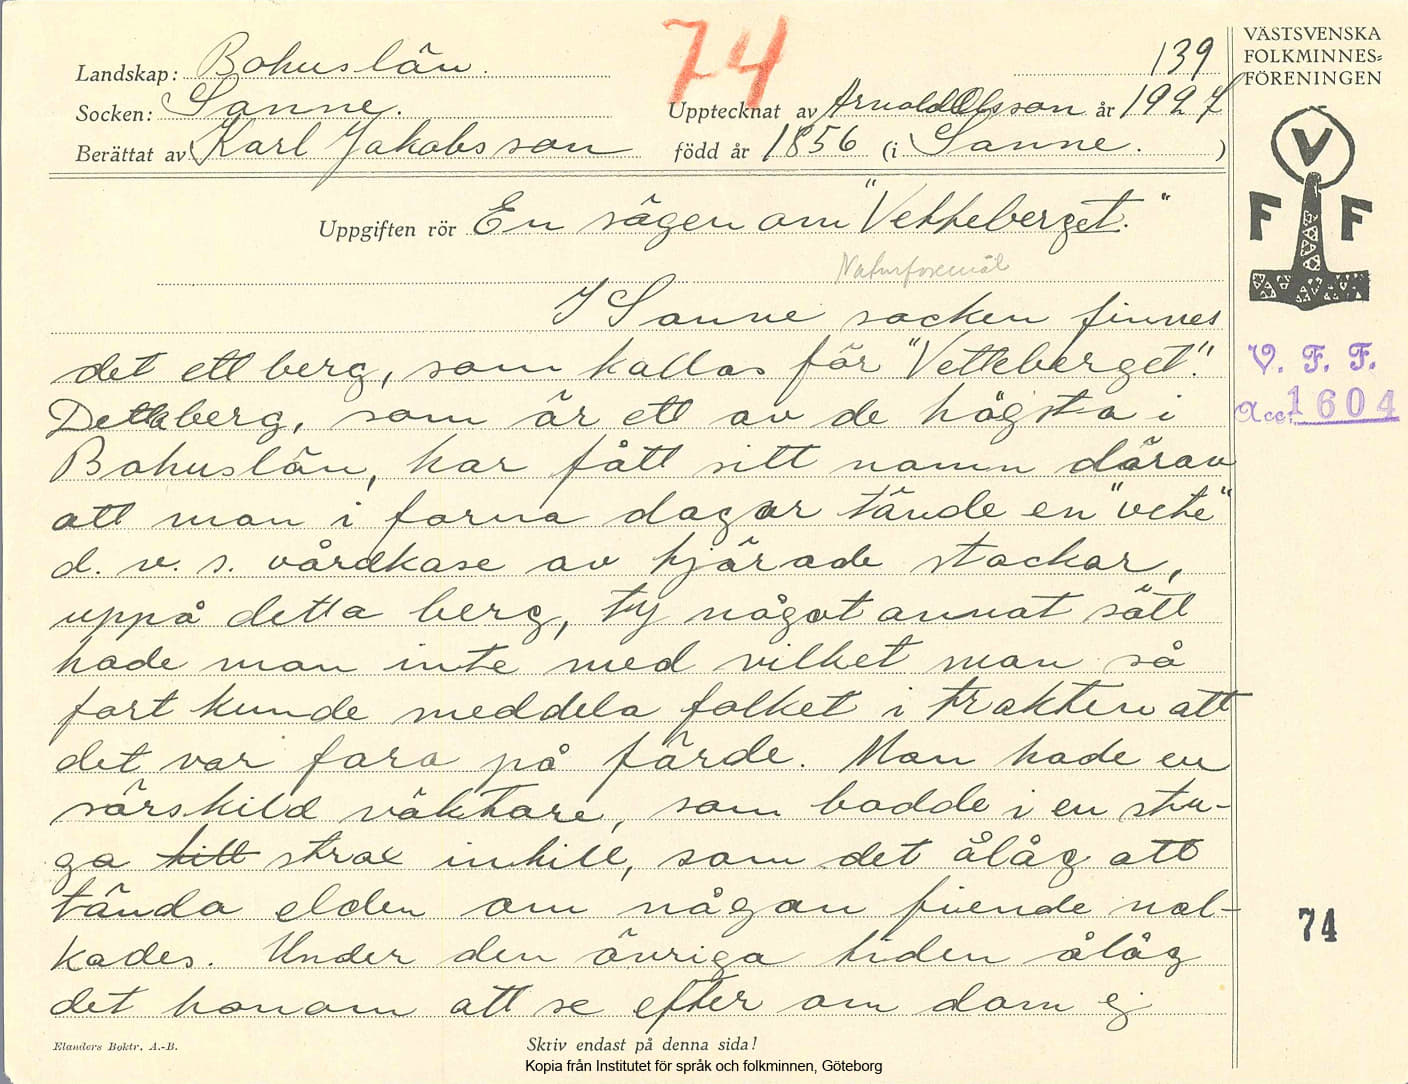 74
139
VÄSTSVENSKA
FOLKMINNES=
FÖRENINGEN
Landskap: Bohuslän.
Socken: Sanne.
Upptecknat av Arnold Olsson år 1927
Berättat av Karl Jakobsson
född år 1856 (i Sanne. )
V
F F
Uppgiften rör En sägen om "Vetteberget."
Naturföremål
I Sanne socken finnes
det ett berg, som kallas för "Vetteberget".
Detta berg, som är ett av de högsta i
Bohuslän, har fått sitt namn därav
att man i forna dagar tände en "vete"
d. v. s. vårdkase av tjärade stockar,
uppå detta berg, ty något annat sätt
hade man inte med vilket man så
fort kunde meddela folket i trakten att
det var fara på färde. Man hade en
särskild väktare, som bodde i en stu-
ga till strax intill, som det ålåg att
tända elden om någon fiende nal-
kades. Under den övriga tiden ålåg
det honom att se efter om dom ej
V. F. F.
Acc. 1604
74
Elanders Boktr. A.-B.
Skriv endast på denna sida!
Kopia från Institutet för språk och folkminnen, Göteborg